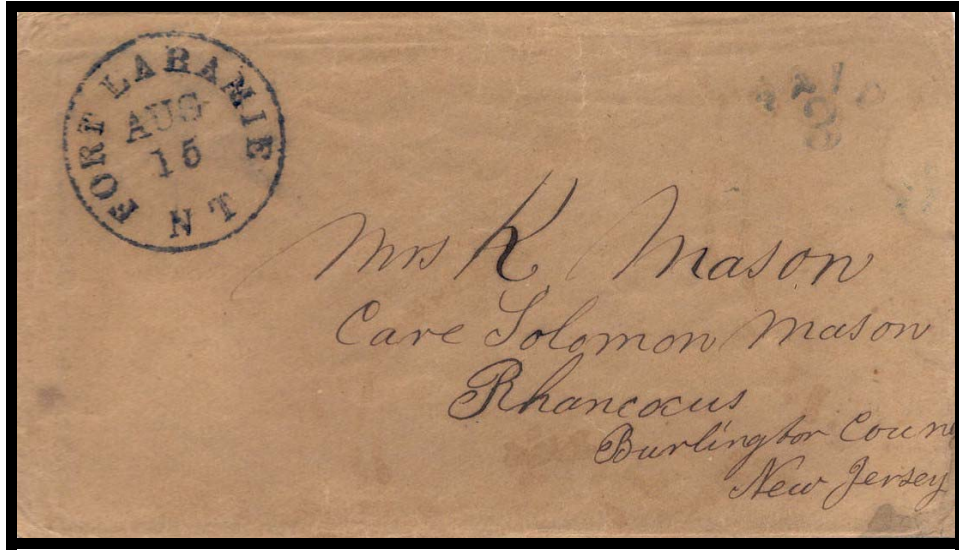 FORT LARAMIE
AUG
15
N T
Mrs K Mason
Care Solomon Mason
Rhancocus
Burlington Coun
New Jersey